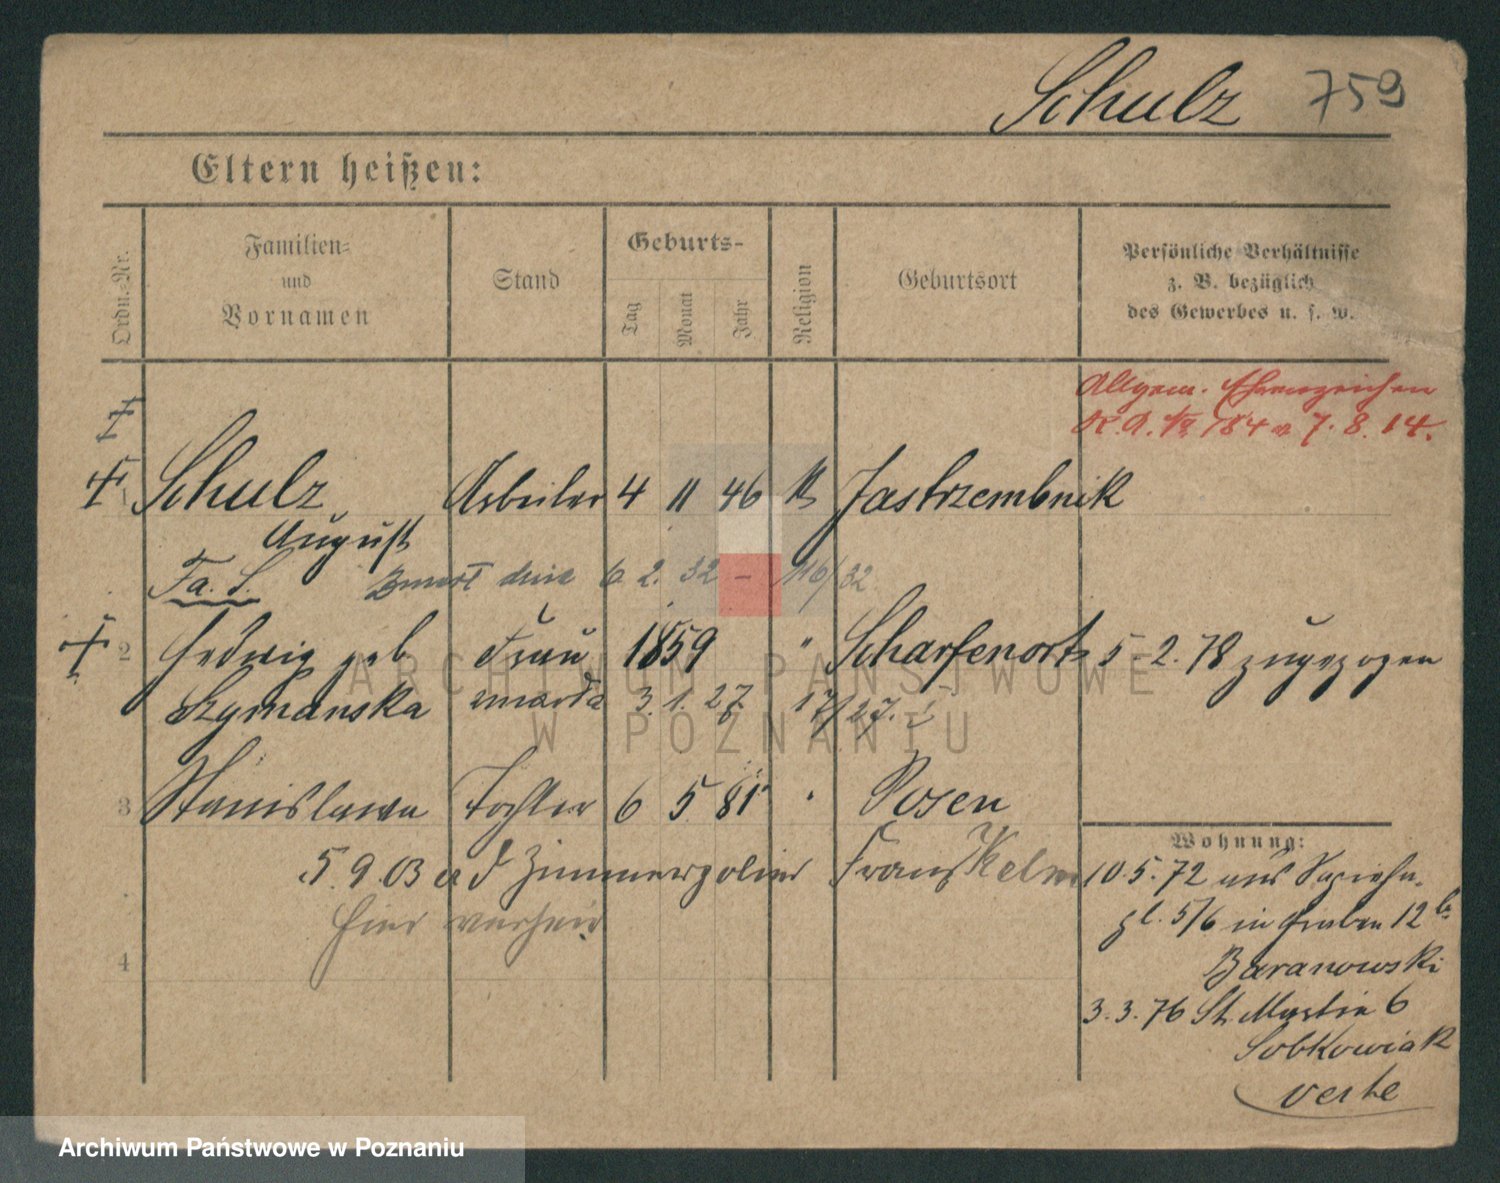 Schulz 759
Eltern heißen:
Ordn.-Nr.
Familien-
und
Vornamen
Stand
Geburts-
Tag
Monat
Jahr
Religion
Geburtsort
Persönliche Verhältnisse
z. B. bezüglich
des Gewerbes u. s. w.
Allgem. Ehrenzeichen
K.O. 184 v. 7. 8. 14.
1 Schulz Arbeiter 4 11 46 K Jastrzembnik
August
Fa. S. 6. 2. 32 - 116/32
2 Hedwig geb Frau 1859 " Scharfenort 5. 2. 78 zugezogen
Szymanska 3. 1. 27 17/27.
3 Stanislawa Tochter 6 5 81 " Posen
5. 9. 03 a d Zimmerpolier Franz Kelm
hier verheir
4
Wohnung:
10. 5. 72 aus
pl. 5/6 in Graben 12 b
Baranowski
3. 3. 76 St. Martin 6
Sobkowiak
verte
ARCHIWUM PAŃSTWOWE
W POZNANIU
Archiwum Państwowe w Poznaniu